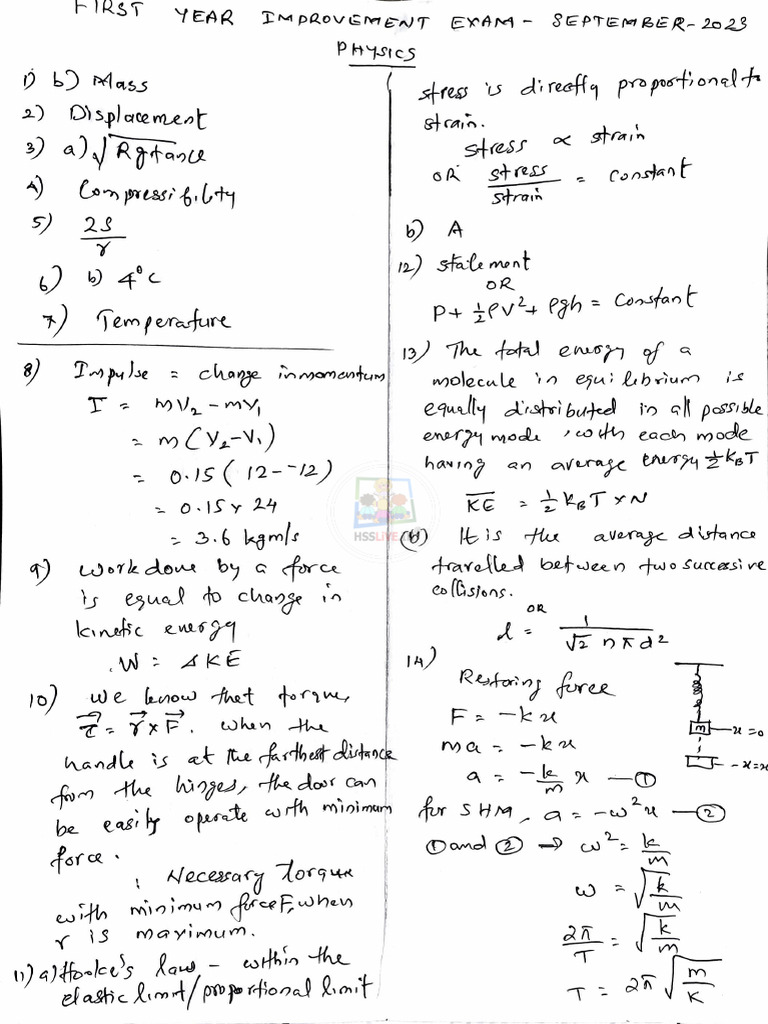 FIRST YEAR IMPROVEMENT EXAM - SEPTEMBER-2023
PHYSICS
1) b) Mass
2) Displacement
3) a) √Rgtanθ
4) Compressibility
5) 2S/r
6) b) 4°C
7) Temperature
8) Impulse = change in momentum
I = mV₂ - mV₁
= m(V₂-V₁)
= 0.15(12--12)
= 0.15 × 24
= 3.6 kgm/s
9) work done by a force
is equal to change in
kinetic energy
W = ΔKE
10) we know that torque,
τ⃗ = r⃗ × F⃗. when the
handle is at the farthest distance
from the hinges, the door can
be easily operate with minimum
force.
: Necessary torque
with minimum force F, when
r is maximum.
11) a) Hooke's law - within the
elastic limit/proportional limit
stress is directly proportional to
strain.
stress ∝ strain
OR stress/strain = constant
b) A
12) statement
OR
P + ½ρv² + ρgh = constant
13) The total energy of a
molecule in equilibrium is
equally distributed in all possible
energy mode, with each mode
having an average energy ½ k_BT
K̅E̅ = ½ k_BT × N
(b) It is the average distance
travelled between two successive
collisions.
OR
l = 1/(√2 nπd²)
14)
Restoring force
F = -kx
m
x=0
-x=x
ma = -kx
a = -k/m x —①
for SHM, a = -ω²x —②
① and ② → ω² = k/m
ω = √(k/m)
2π/T = √(k/m)
T = 2π√(m/k)
HSSLIVE